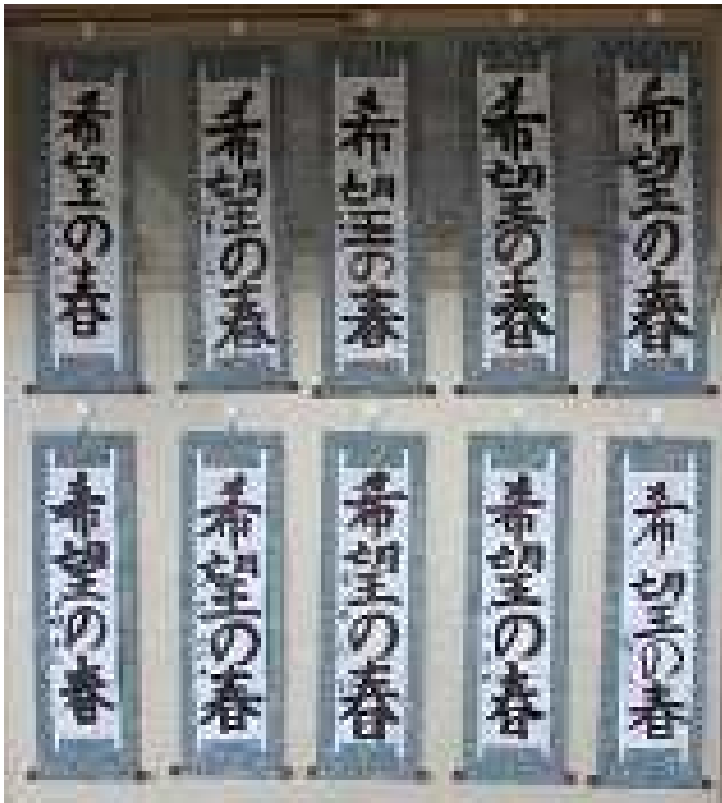 希望の春
希望の春
希望の春
希望の春
希望の春
希望の春
希望の春
希望の春
希望の春
希望の春